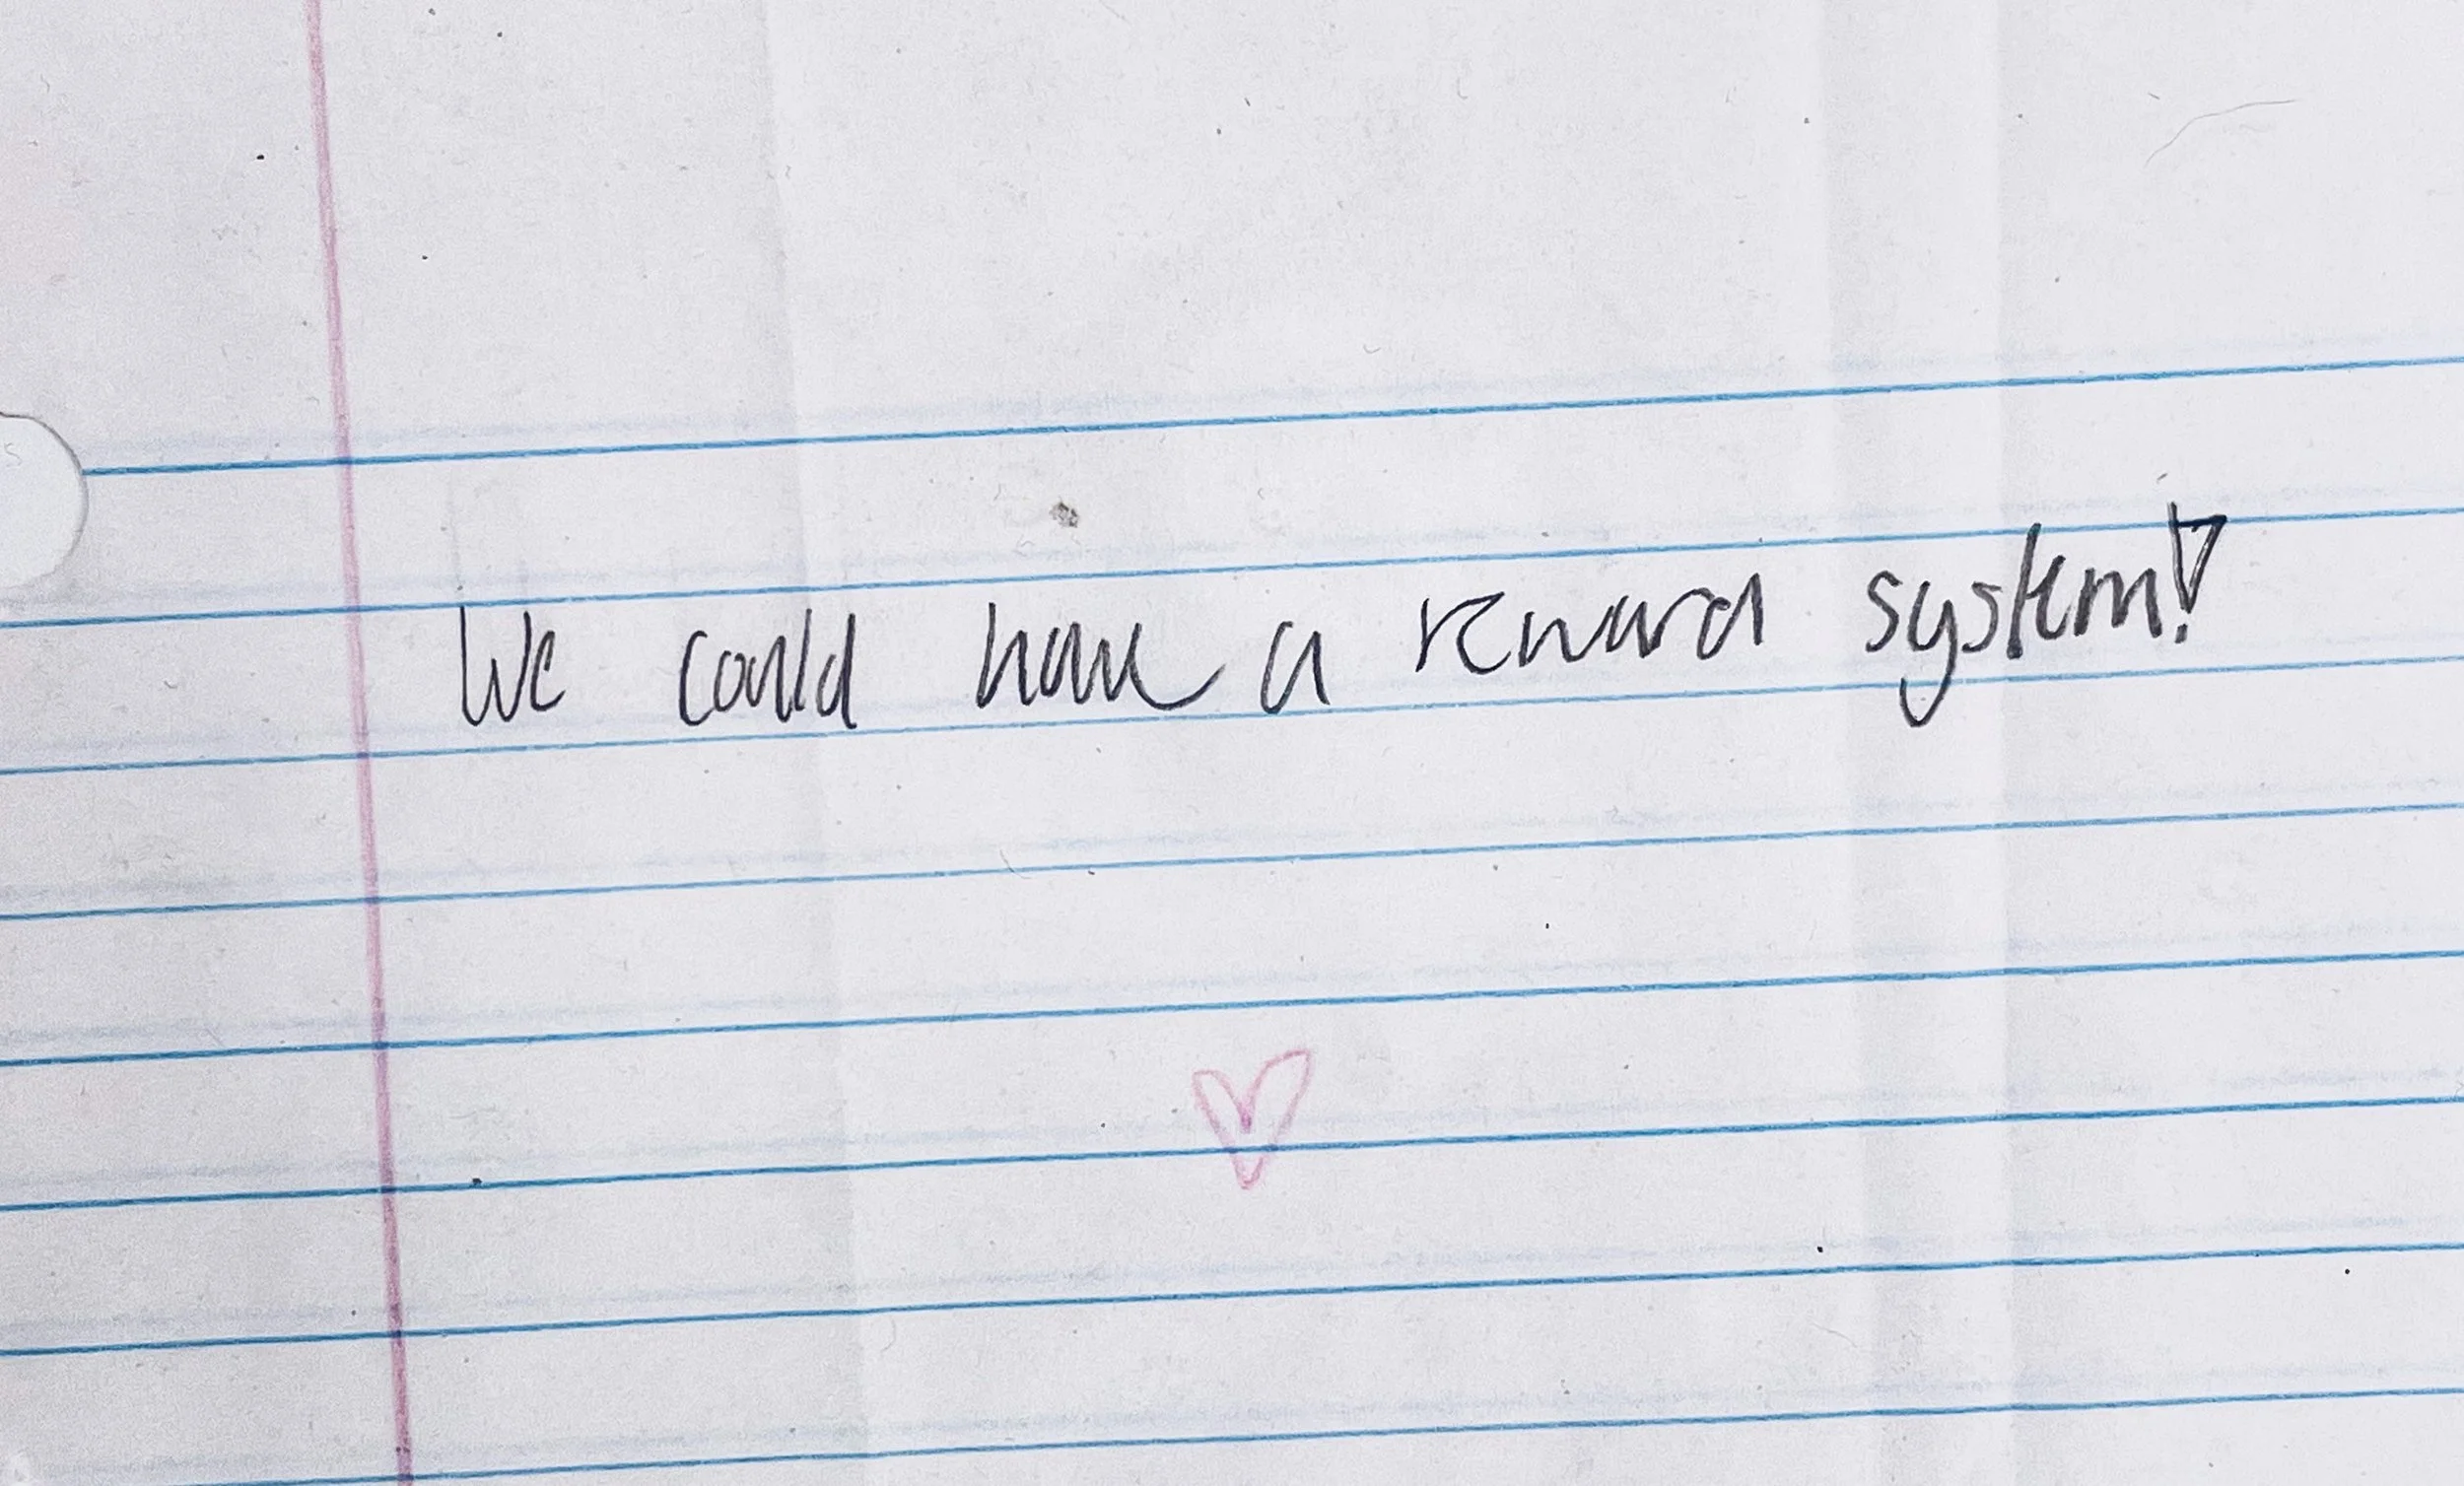 We could have a reward system!